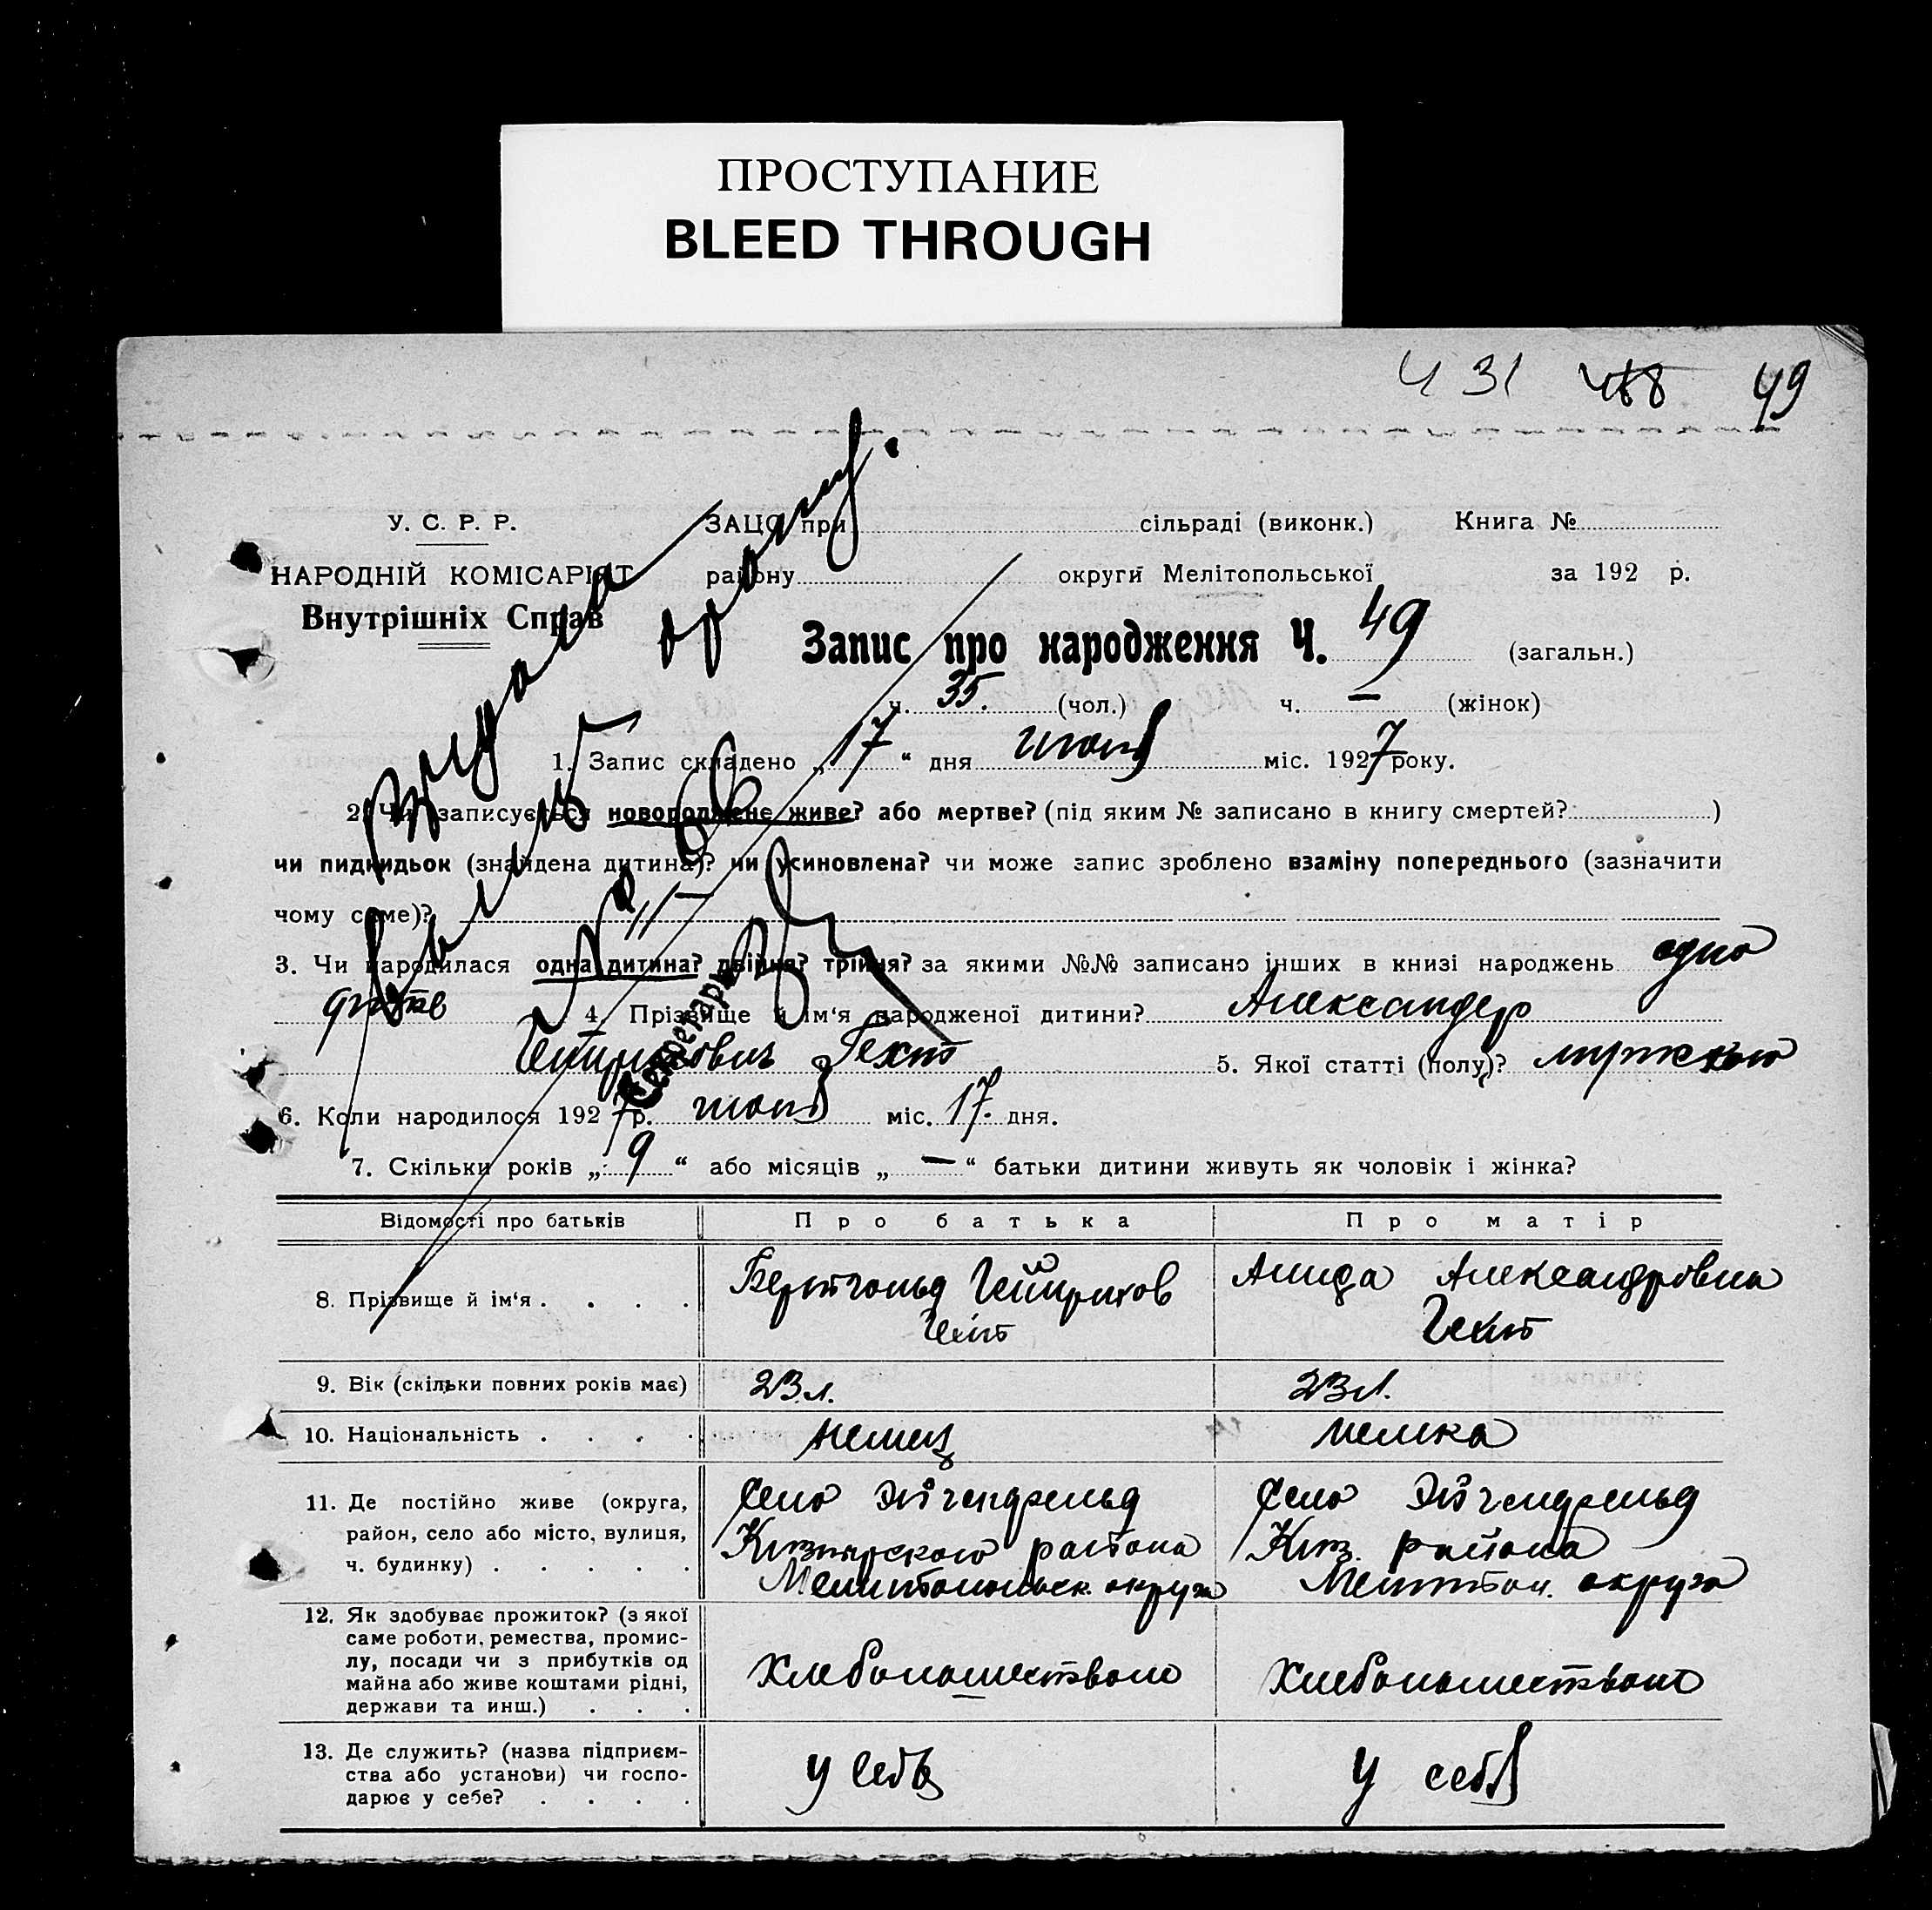 ПРОСТУПАНИЕ
BLEED THROUGH
431 488 49
У. С. Р. Р. ЗАЦС при сільраді (виконк.) Книга №
НАРОДНІЙ КОМІСАРІЯТ району округи Мелітопольської за 192 р.
Внутрішніх Справ
Запис про народження Ч. 49 (загальн.)
ч. 35. (чол.) ч. — (жінок)
1. Запис складено „17“ дня июня міс. 1927 року.
2. Чи записується новороджене живе? або мертве? (під яким № записано в книгу смертей? )
чи пидкидьок (знайдена дитина)? чи усиновлена? чи може запис зроблено взаміну попереднього (зазначити
чому саме)?
3. Чи народилася одна дитина? двійня? трійня? за якими №№ записано інших в книзі народжень одно
дитяе 4. Прізвище й ім‘я народженої дитини? Александер
Гейнрихович Гехт 5. Якої статті (полу)? мужского
Секретарь
6. Коли народилося 1927 р. июня міс. 17. дня.
7. Скільки років „ 9 “ або місяців „ — “ батьки дитини живуть як чоловік і жінка?
Відомості про батьків Про батька Про матір
8. Прізвище й ім‘я . . . . Бертгольд Гейнрихов Алида Александровна
Гехт Гехт
9. Вік (скільки повних років має) 23 л. 23 л.
10. Національність . . . . немец немка
11. Де постійно живе (округа, Село Эйгенфельд Село Эйгенфельд
район, село або місто, вулиця, Кизиярского района Киз. района
ч. будинку) . . . . . Мелитопольск. округа Мелитоп. округа
12. Як здобуває прожиток? (з якої
саме роботи, ремества, промис-
лу, посади чи з прибутків од
майна або живе коштами рідні, Хлебопашеством Хлебопашеством
держави та инш.) . . .
13. Де служить? (назва підприєм-
ства або установи) чи госпо- у себя у себя
дарює у себе? . . . .